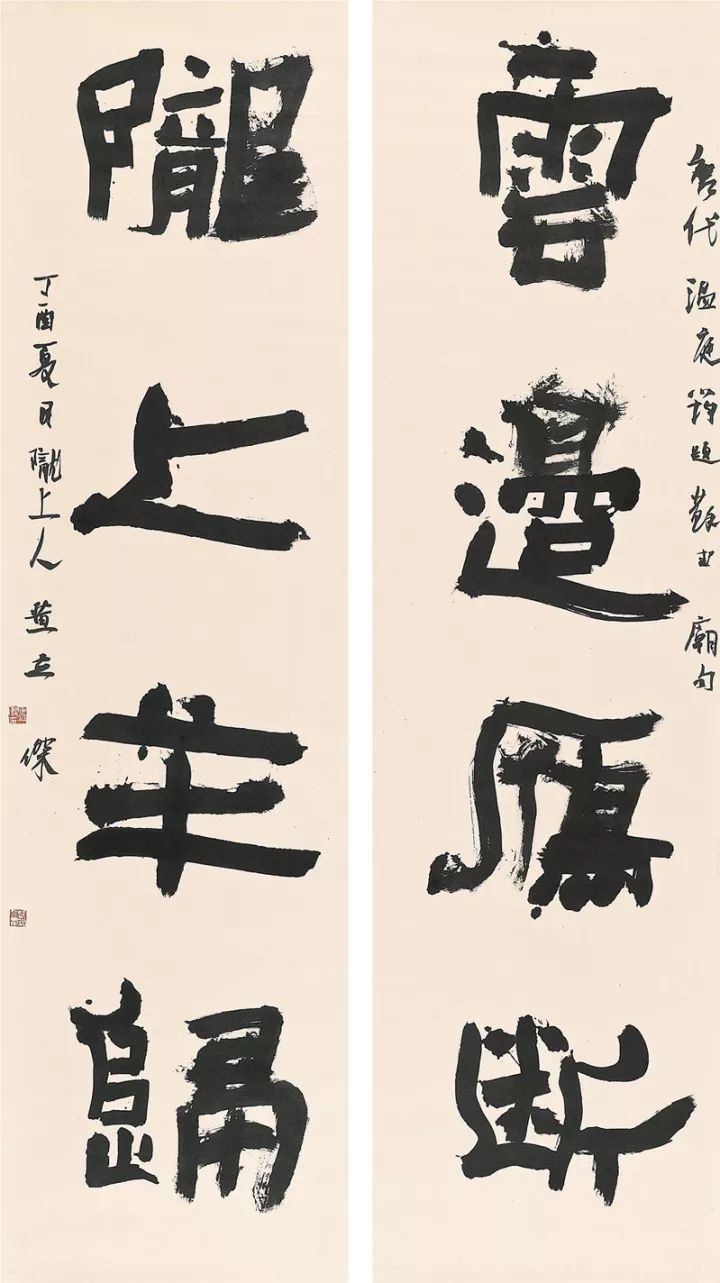 唐代温庭筠題蘇武廟句
雲邊鴈斷
隴上羊歸
丁酉夏月隴上人黄立傑